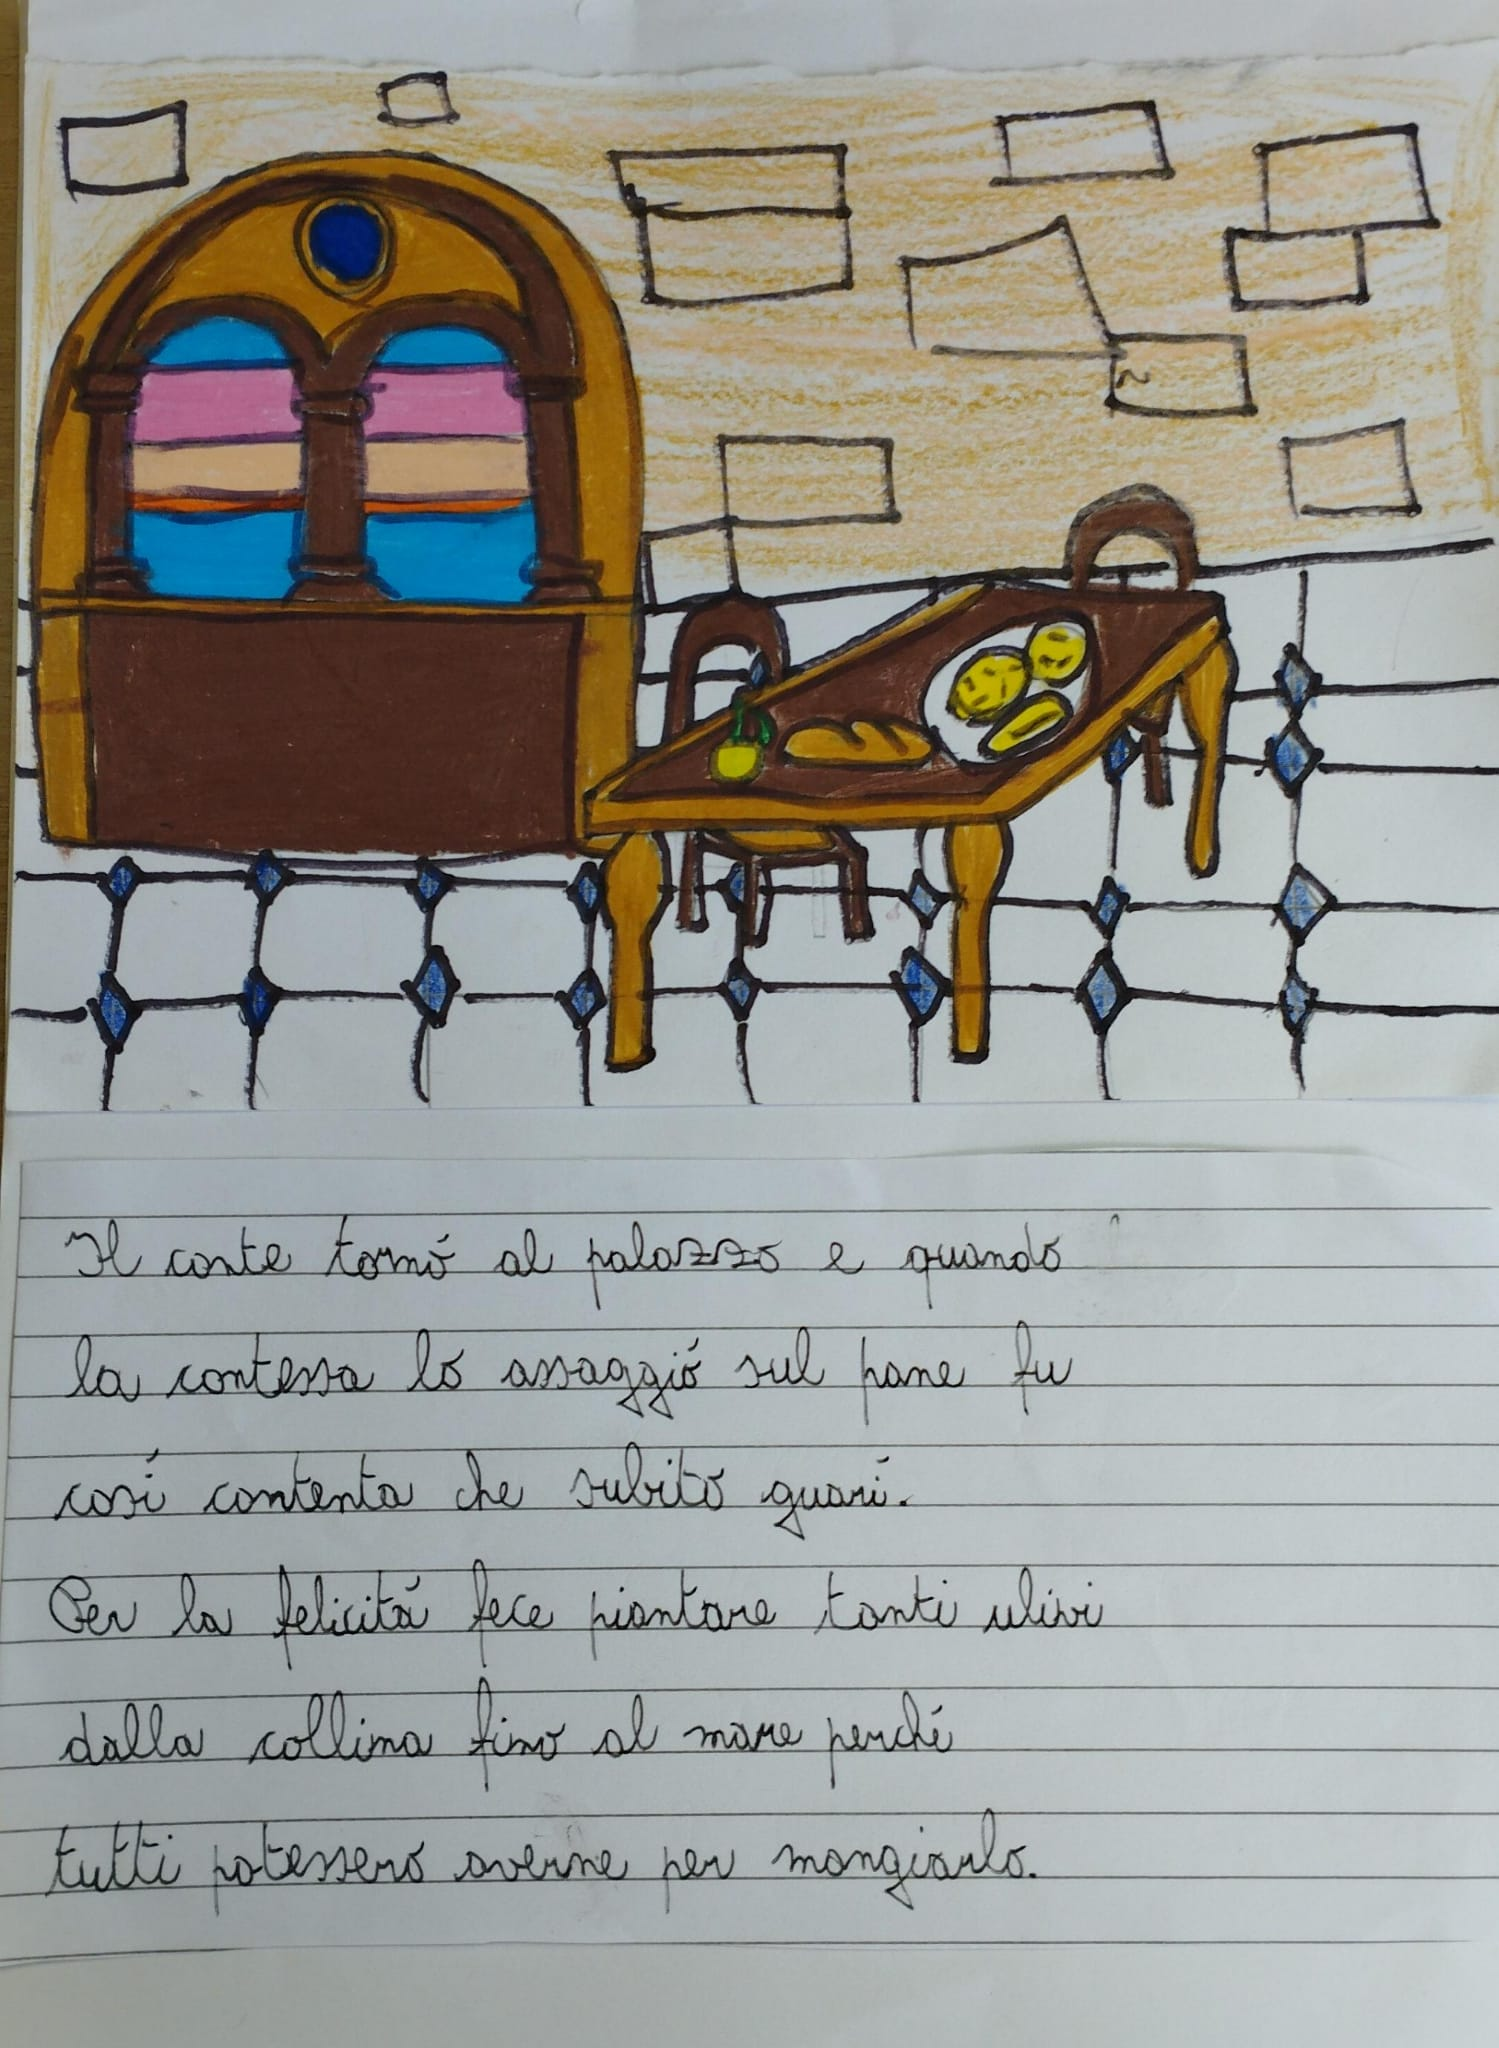 Il conte tornó al palazzo e quando
la contessa lo assaggió sul pane fu
cosí contenta che subito guarí.
Per la felicitá fece piantare tanti ulivi
dalla collina fino al mare perché
tutti potessero averne per mangiarlo.